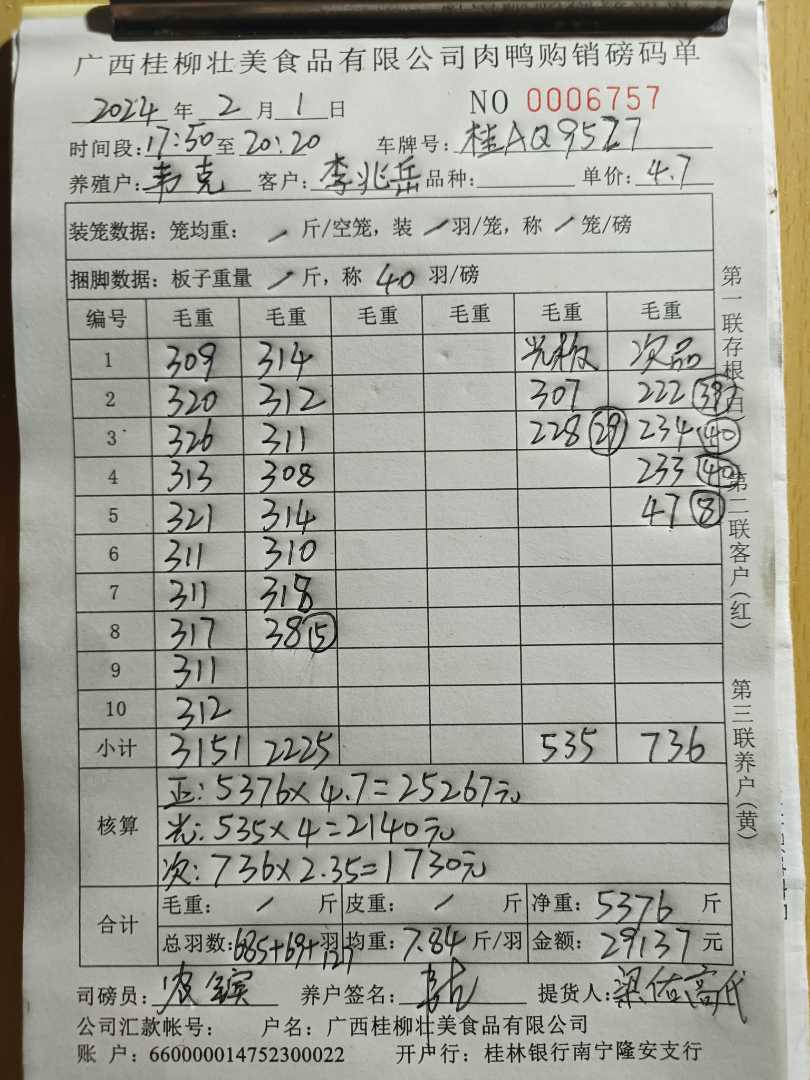 广西桂柳壮美食品有限公司肉鸭购销磅码单
2024年 2月 1日 NO 0006757
时间段: 17:50至 20:20 车牌号: 桂AQ9527
养殖户: 韦克 客户: 李兆岳 品种: 单价: 4.7
装笼数据: 笼均重: / 斤/空笼, 装 / 羽/笼, 称 / 笼/磅
捆脚数据: 板子重量 / 斤, 称 40 羽/磅
编号 毛重 毛重 毛重 毛重 毛重 毛重
1 309 314 光板 次品
2 320 312 307 222 39
3 326 311 228 29 234 40
4 313 308 233 40
5 321 314 47 8
6 311 310
7 311 318
8 317 38 15
9 311
10 312
小计 3151 2225 535 736
核算 正: 5376×4.7=25267元
光: 535×4=2140元
次: 736×2.35=1730元
合计 毛重: / 斤 皮重: / 斤 净重: 5376 斤
总羽数: 685+69+127 羽 均重: 7.84 斤/羽 金额: 29137 元
司磅员: 养户签名: 提货人:
公司汇款帐号: 户名: 广西桂柳壮美食品有限公司
账 户: 660000014752300022 开户行: 桂林银行南宁隆安支行
第一联存根(白) 第二联客户(红) 第三联养户(黄)